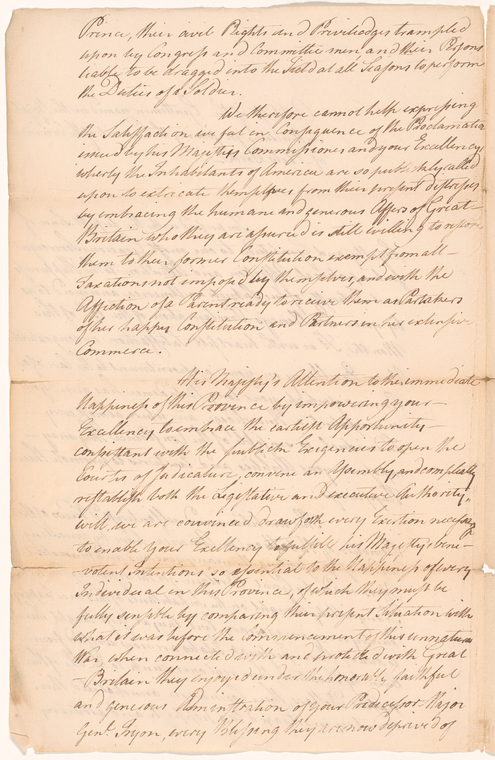 Prince, their civil Rights and Priviledges trampled
upon by Congress and Committee men and their Persons
liable to be dragged into the Field at all Seasons to perform
the Duties of a Soldier.
We therefore cannot help expressing
the Satisfaction we feel in Consequence of the Proclamation
issued by his Majestys Commissioners and your Excellency
wherby the Inhabitants of America are so publickly called
upon to extricate themselves from their present distresses
by embracing the humane and generous Offers of Great
Britain who they are assured is still willing to restore
them to their former Constitution exempt from all
Taxations not imposed by themselves, and with the
Affection of a Parent ready to receive them as Partakers
of her happy Constitution and Partners in her extensive
Commerce.
His Majesty's Attention to the immediate
Happiness of this Province by impowering your
Excellency to embrace the earliest Opportunity
consistant with the publick Exigencies to open the
Courts of Judicature, convene an Assembly, and compleatly
restablish both the Legislative and executive Authority,
will, we are convinced, draw forth every Exertion necessary
to enable your Excellency to fulfill his Majesty's bene-
volent Intentions, so essential to the Happiness of every
Individual in this Province, of which they must be
fully sensible by comparing their present Situation with
what it was before the commencement of this unnatural
War, when connected with and protected with Great
Britain they enjoyed under the honorable, faithful
and generous Administration of your Predecessor Major
Genl. Tryon, every Blessing they are now deprived of